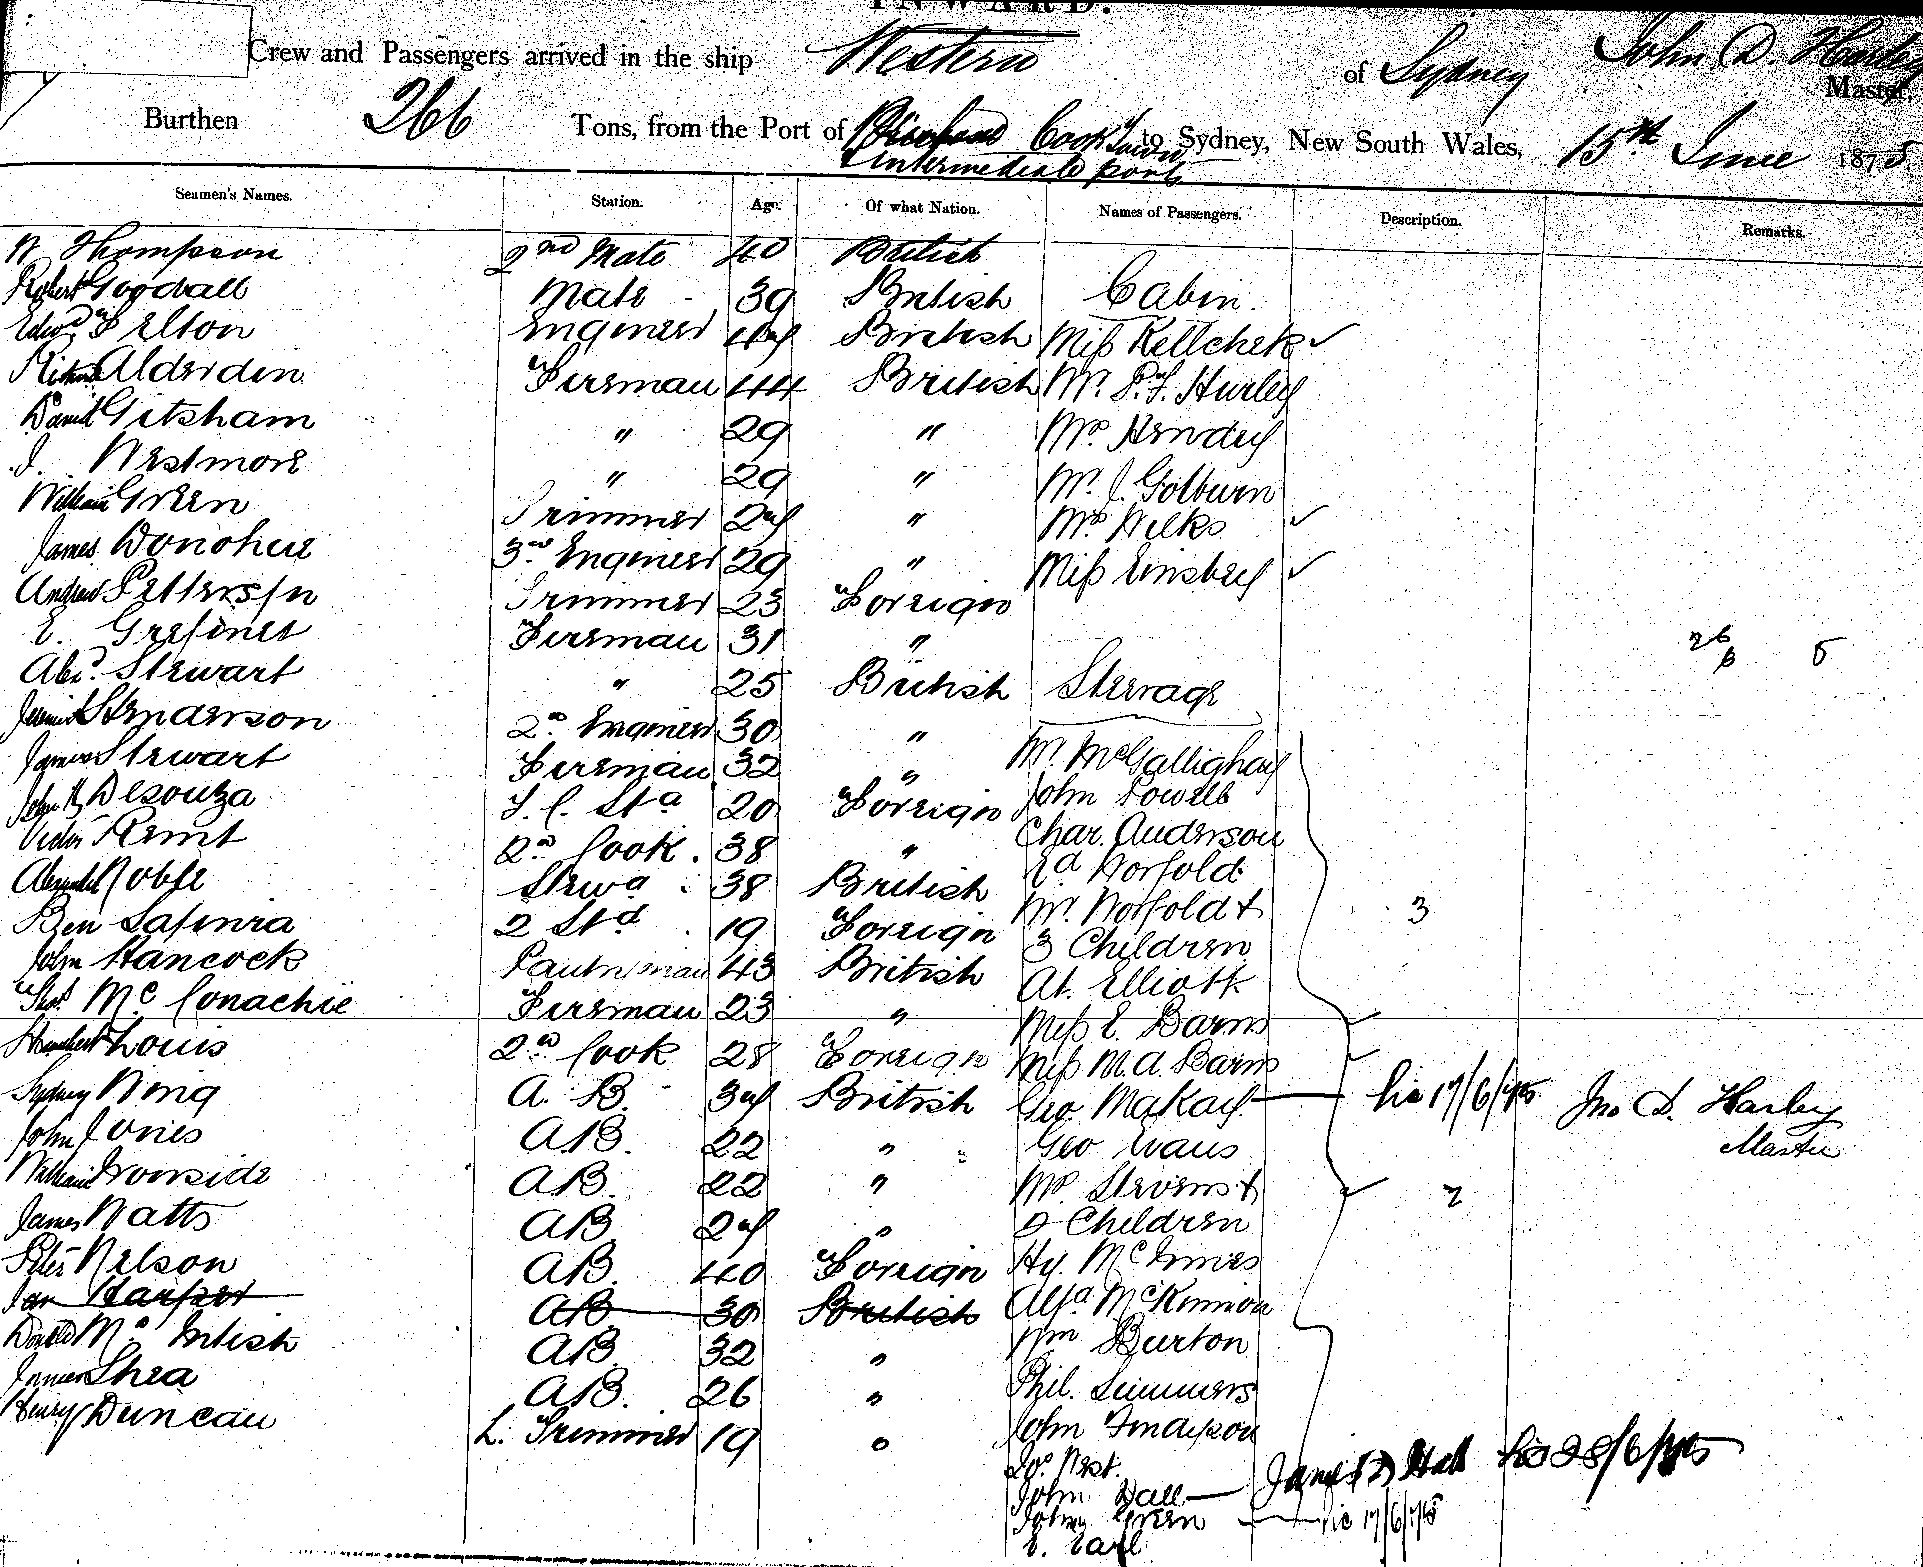 INWARD.
Crew and Passengers arrived in the ship Western of Sydney John D. Harley Master,
Burthen 266 Tons, from the Port of Cook Town to Sydney, New South Wales, 15th June 1875
& intermediate ports
Seamen's Names. Station. Age. Of what Nation. Names of Passengers. Description. Remarks.
W Thompson 2nd Mate 40 British
Robert Goodall Mate 39 British Cabin
Edwd Felton Engineer British Miss Kellchek
Alderden Fireman 44 British Mr. P. F. Hurley
David Gitsham " 29 " Mrs Hendy
J. Westmore " 29 " Mr. J. Golburn
William Green Trimmer 24 " Mrs Wilks
James Donohue 3rd Engineer 29 " Miss Linsbey
Andrew Petterssn Trimmer 23 Foreign
E. Fireman 31 " 26 5
Alexr. Stewart " 25 British Steerage
Henderson 2nd Engineer 30 "
James Stewart Fireman 32 " Mr. McGallighay
John Desouza F. C. Std 20 Foreign John Powell
Victor 2nd Cook. 38 " Char. Anderson
Alexander Noble Stewd 38 British Ed Norfold
Ben 2 Std 19 Foreign Mr. Norfold & 3
John Hancock 43 British 3 Children
Thos. Mc Conachie Fireman 23 " At. Elliott
Louis 2nd Cook 28 Foreign Miss E. Barns
Sydney Wing A. B. 34 British Miss M. A. Barns
John Jones A.B. 22 " Geo. MaKay 17/6/75 Jno D. Harley
William Ironside A.B. 22 " Geo Evans Master
James Watts A.B. 24 " Mrs Stevens & 2
Peter Nelson A.B. 40 Foreign 2 Children
Jas Harper A.B. 30 British Hy. McInnies
David Mc Intish A.B. 32 " Alfd McKinnion
James Shea A.B. 26 " Wm Burton
Henry Duncan L. Trimmer 19 " Phil. Simmers
John Finlayson
West.
John Hall James D Hall 28/6/75
Johny Green 17/6/75
E. Earl